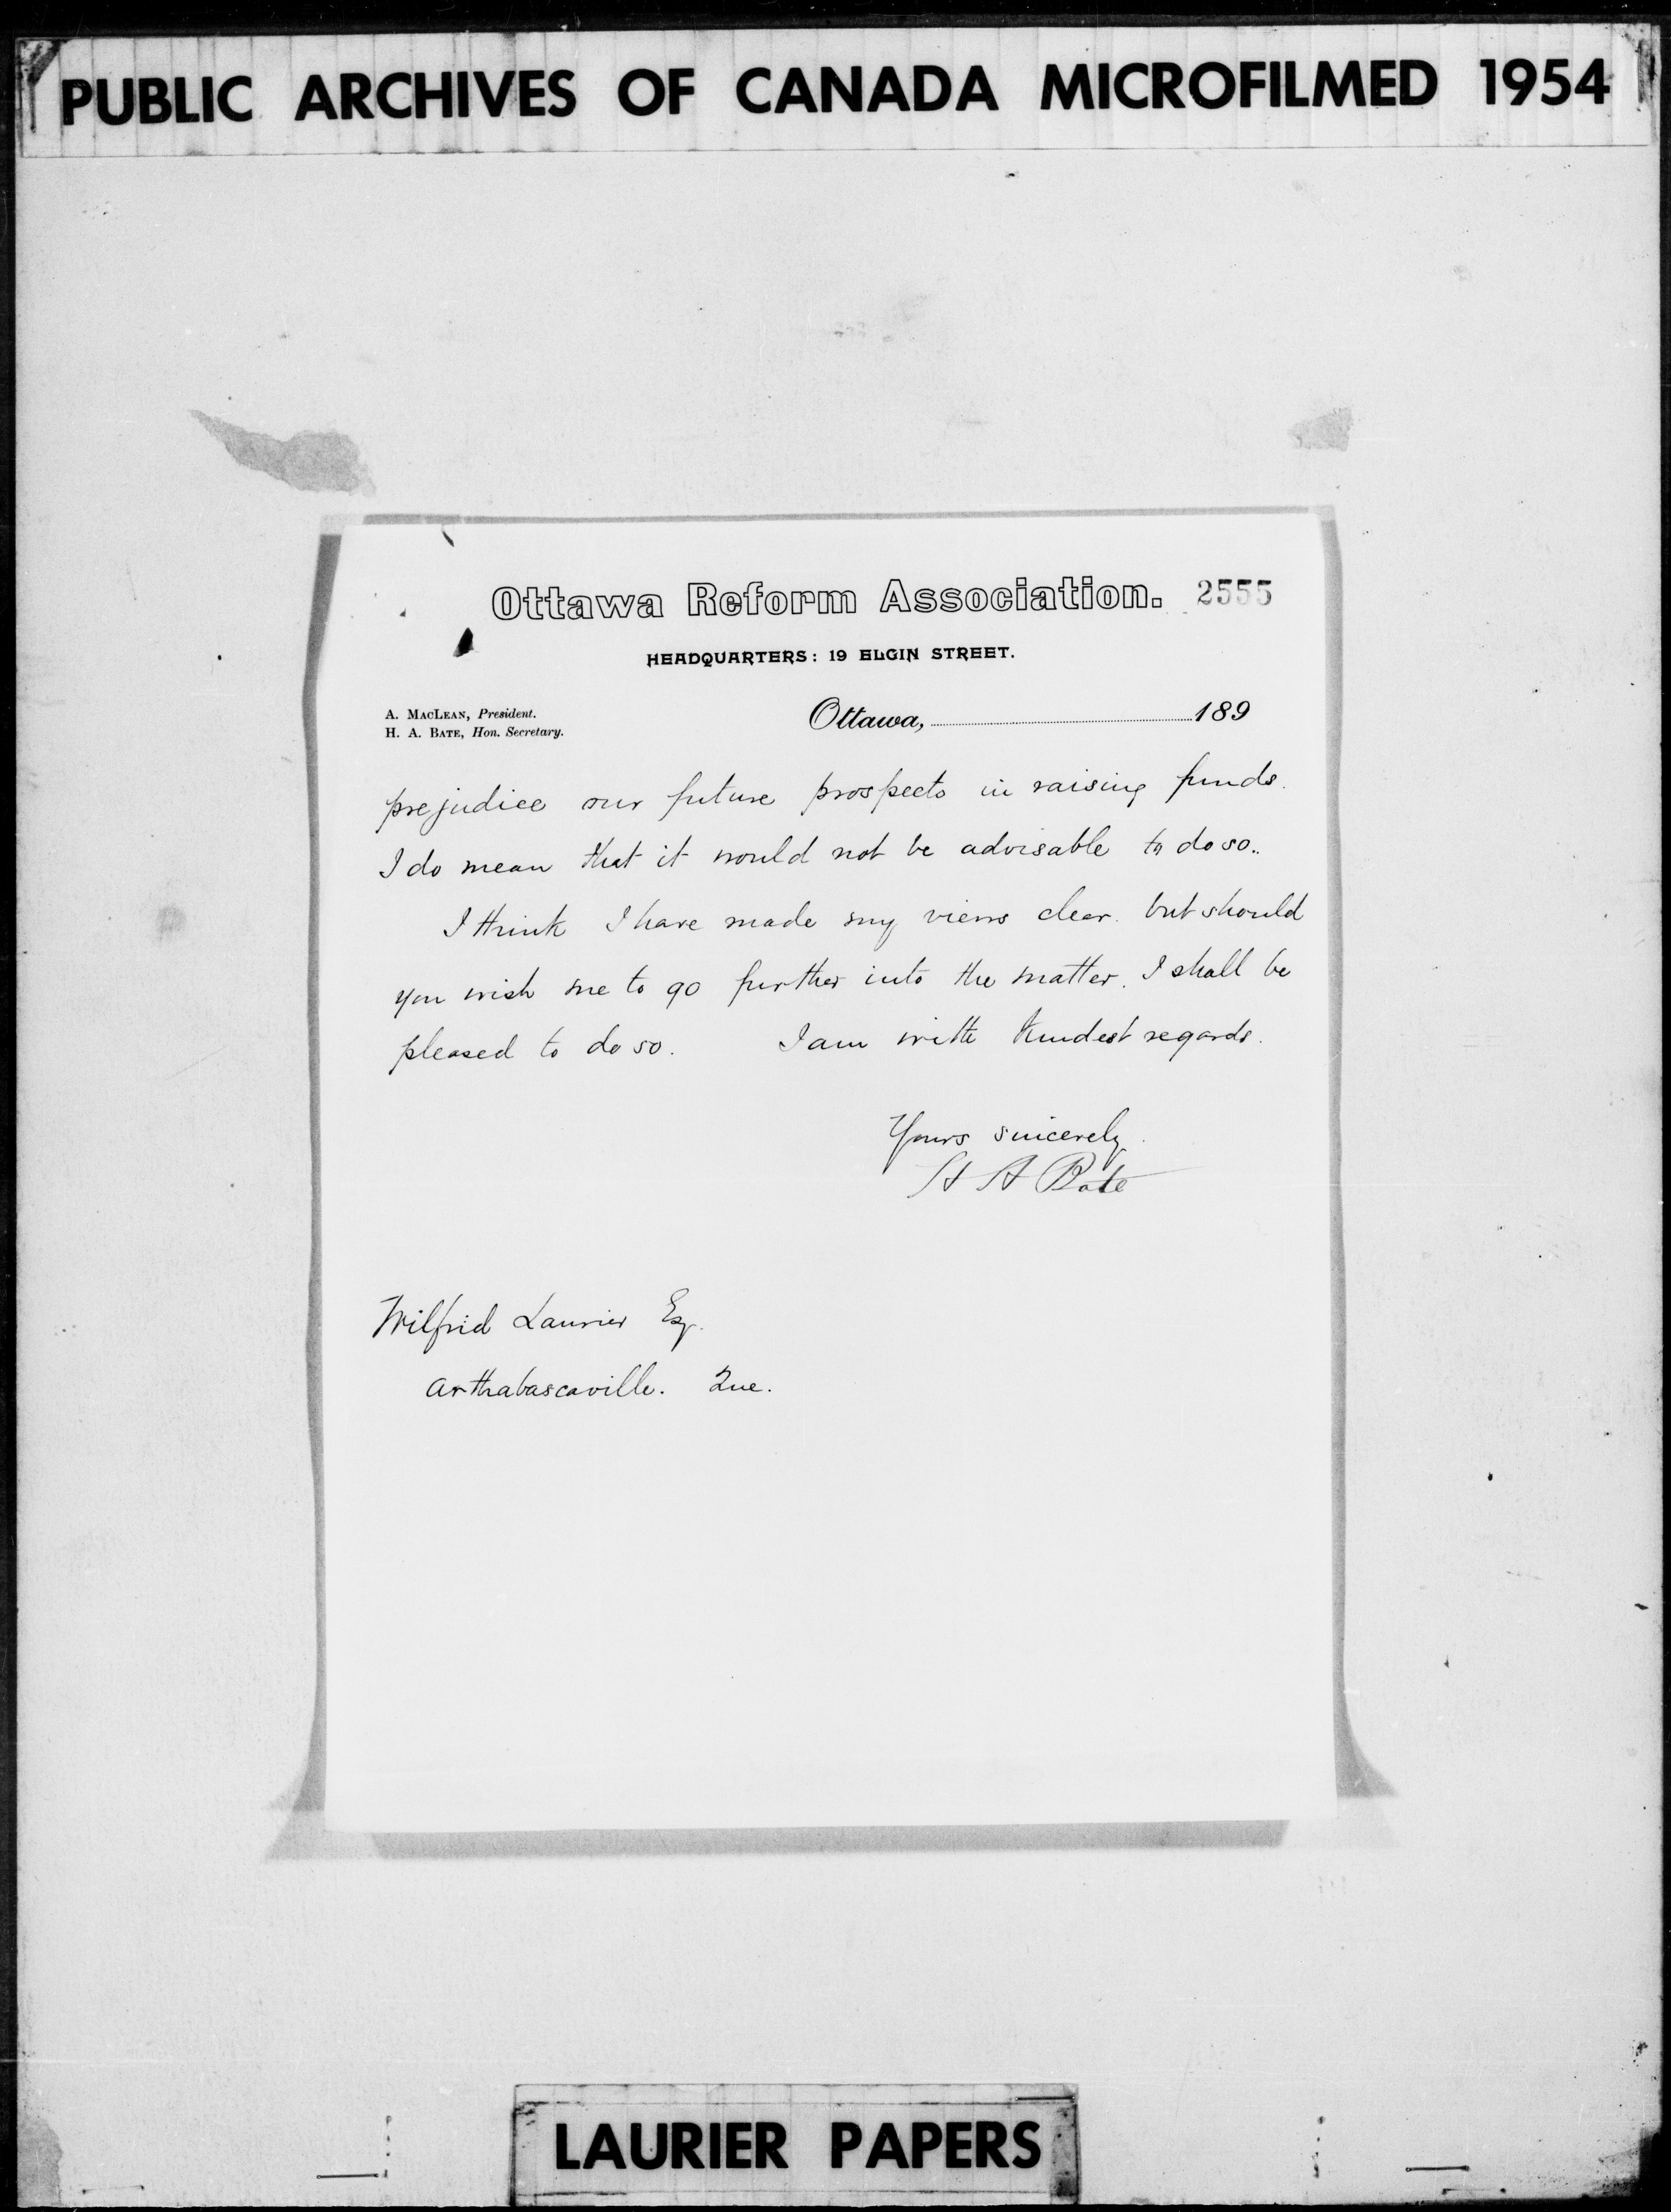 PUBLIC ARCHIVES OF CANADA MICROFILMED 1954
Ottawa Reform Association. 2555
HEADQUARTERS: 19 ELGIN STREET.
A. MACLEAN, President.
H. A. BATE, Hon. Secretary.
Ottawa, 189
prejudice our future prospects in raising funds.
I do mean that it would not be advisable to do so..
I think I have made my views clear. but should
you wish me to go further into the matter. I shall be
pleased to do so. I am with kindest regards.
Yours sincerely.
H A Bate
Wilfrid Laurier Esq.
Arthabascaville. Que.
LAURIER PAPERS